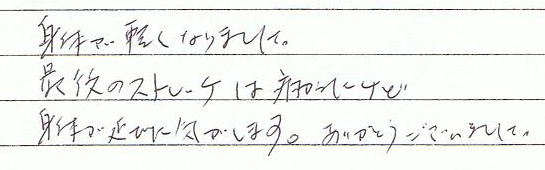 身体が軽くなりました。
最後のストレッチは痛かったけど
身体が延びた気がします。ありがとうございました。